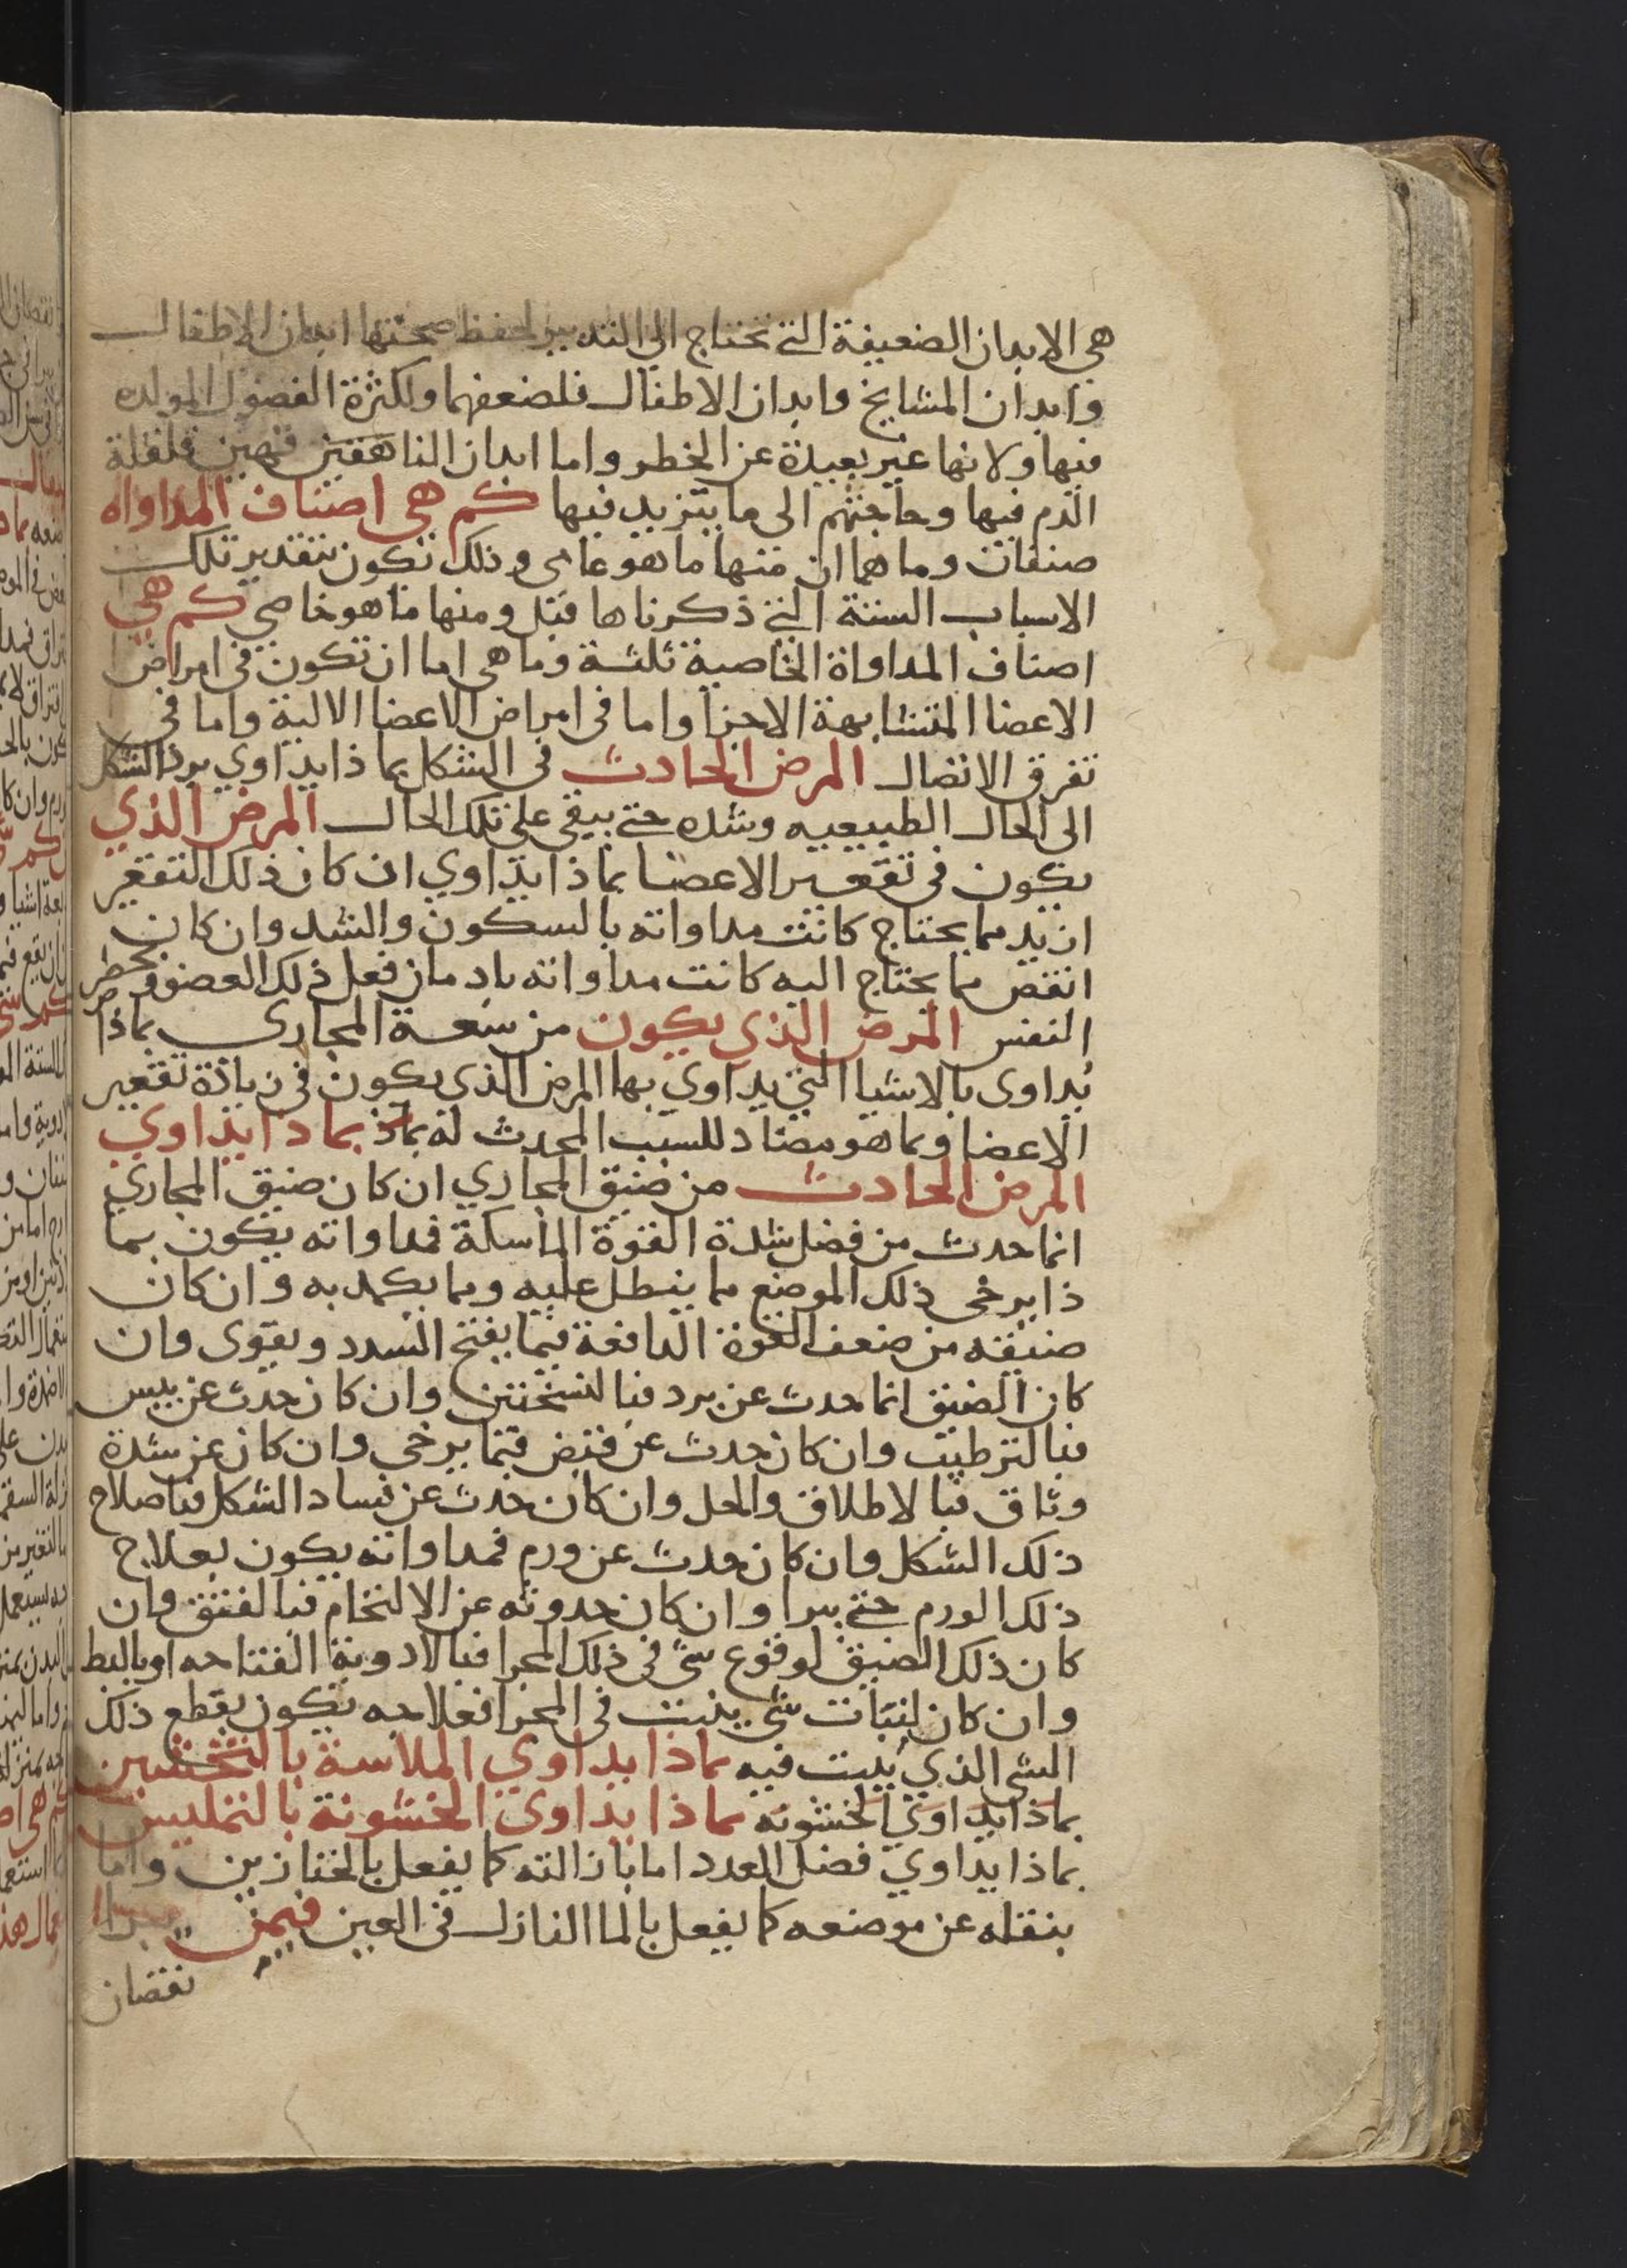 هي الابدان الضعيفة التي تحتاج الي التدبير لحفظ صحتها ابدان الاطفال
وابدان المشايخ وابدان الاطفال فلضعفهما ولكثرة الفضول المولده
فيها ولانها غير بعيدة عن الخطر واما ابدان الناهقين فهين فلقلة
الدم فيها وحاجتهم الى ما يتزيد فيها كم هي اصناف المداواه
صنفان وما هما ان منها ما هو عامي وذلك تكون بتقدير تلك
الاسباب الستة التي ذكرناها قبل ومنها ما هو خاصي كم هي
اصناف المداواة الخاصية ثلثة وما هي اما ان تكون في امراض
الاعضا المتشابهة الاجزا واما في امراض الاعضا الالية واما في
تفرق الاتصال المرض الحادث في الشكل بما ذا يداوي برد الشكل
الى الحال الطبيعيه وشده حتى يبقى على تلك الحال المرض الذي
يكون في تقعير الاعضا بماذا يداوي ان كان ذلك التقعير
ازيد مما يحتاج كانت مداواته بالسكون والشد وان كان
انقص مما يحتاج اليه كانت مداواته بادمان فعل ذلك العضو وحصر
النفس المرض الذي يكون من سعة المجارى بماذا
يداوى بالاشيا التي يداوي بها المرض الذي يكون في زيادة تقعير
الاعضا وبما هو مضاد للسبب المحدث له بماذ بماذا يداوي
المرض الحادث من ضيق المجاري ان كان ضيق المجاري
انما حدث من فضل شدة القوة الماسكة فمداواته يكون بما
ذا يرخى ذلك الموضع مما ينطل عليه وبما يكمد به وان كان
ضيقه من ضعف القوة الدافعة فبما يفتح السدد ويقوى وان
كان الضيق انما حدث عن برد فبالتسخين وان كان حدث عن يبس
فبالترطيب وان كان حدث عن قبض فبما يرخى وان كان عن شدة
وثاق فبالاطلاق والحل وان كان حدث عن فساد الشكل فباصلاح
ذلك الشكل وان كان حدث عن ورم فمداواته يكون بعلاج
ذلك الورم حتى يبرا وان كان حدوثه عن الالتحام فبالفتق وان
كان ذلك الضيق لوقوع شي في ذلك المجرا فبالادوية الفتاحه او بالبط
وان كان لنبات شي ينبت في المجرا فعلاجه يكون بقطع ذلك
الشي الذي ينبت فيه بماذا يداوي الملاسة بالتخشين
بماذا يداوي الخشونه بماذا يداوى الخشونة بالتمليس
بماذا يداوي فضل العدد اما بازالته كما يفعل بالخنازير واما
بنقله عن موضعه كما يفعل بالما النازل في العين فيمن يبرا
نقصان